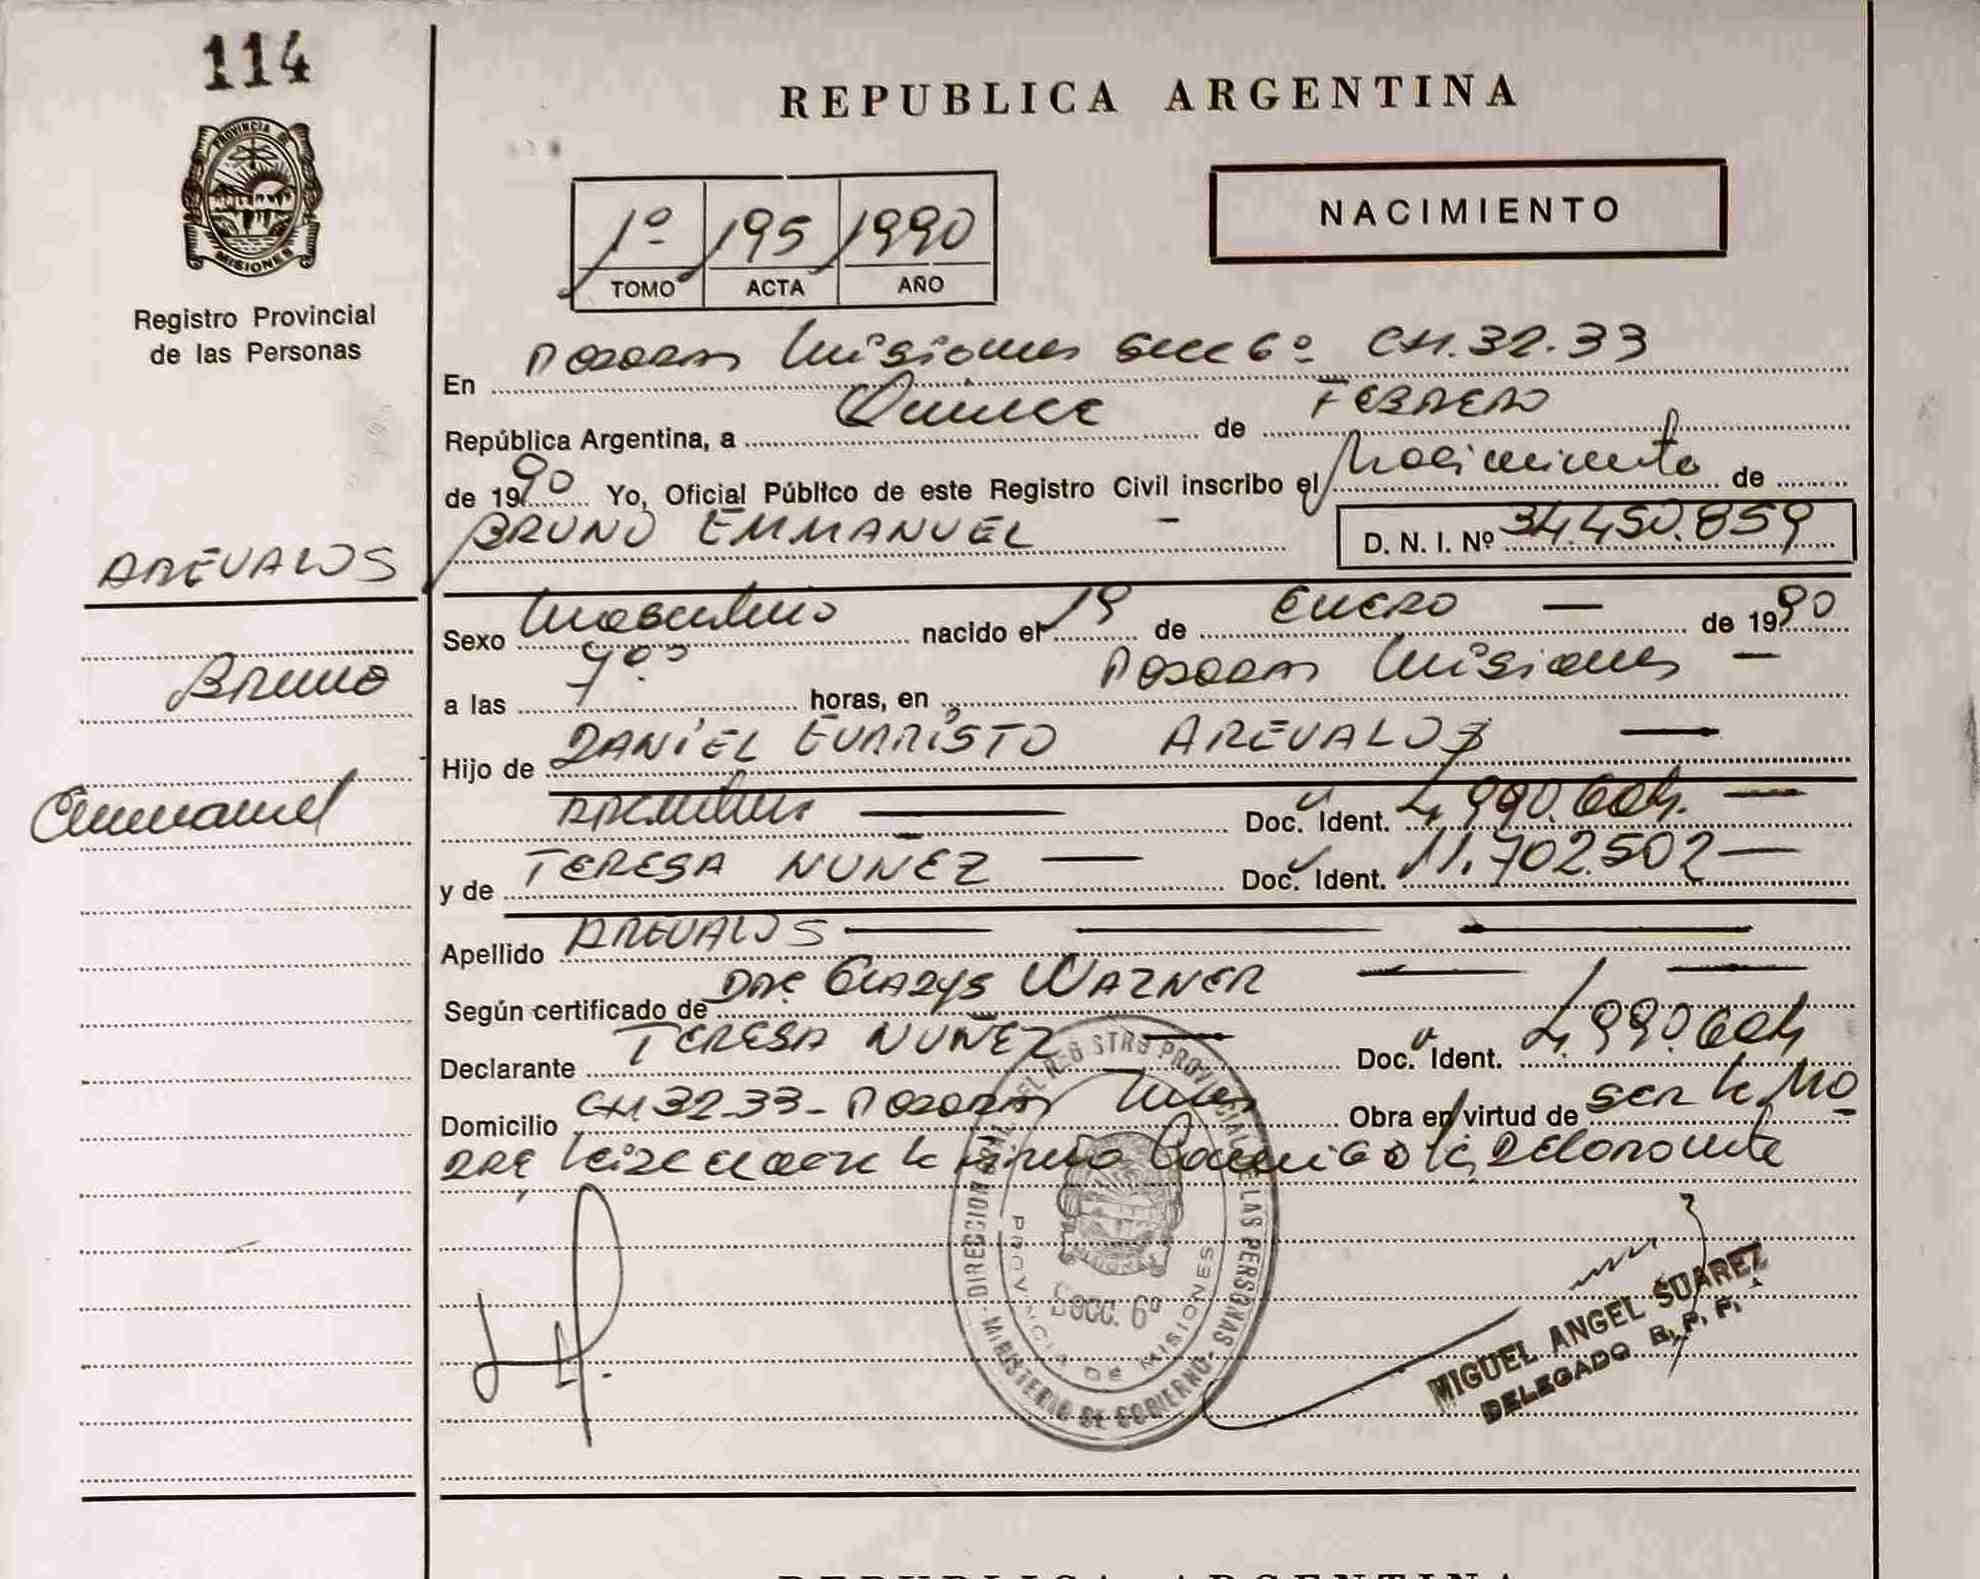 114
PROVINCIA DE
MISIONES
Registro Provincial
de las Personas
AREVALOS
Bruno
Emmanuel
REPUBLICA ARGENTINA
1º 195 1990
TOMO ACTA AÑO
NACIMIENTO
En Posadas Misiones Secc 6º CH. 32.33
República Argentina, a Quince de FEBRERO
de 1990 Yo, Oficial Público de este Registro Civil inscribo el Nacimiento de
BRUNO EMMANUEL - D. N. I. Nº 34.450.859
Sexo Masculino nacido el 19 de ENERO — de 1990
a las 7º horas, en Posadas Misiones —
Hijo de DANIEL EVARISTO AREVALOS —
Argentino — Doc. Ident. —
y de TERESA NUÑEZ — Doc. Ident. 11.702.502 —
Apellido AREVALOS —
Según certificado de DRA. GLADYS WAZNER —
Declarante TERESA NUÑEZ — Doc. Ident.
Domicilio CH 32.33 - Posadas Mnes Obra en virtud de ser la
la firma conmigo la declarante
DIRECCION GRAL. DEL REGISTRO PROVINCIAL DE LAS PERSONAS
MINISTERIO DE GOBIERNO
PROVINCIA DE MISIONES
SECC. 6º
MIGUEL ANGEL SUAREZ
DELEGADO R. P. P.
REPUBLICA ARGENTINA